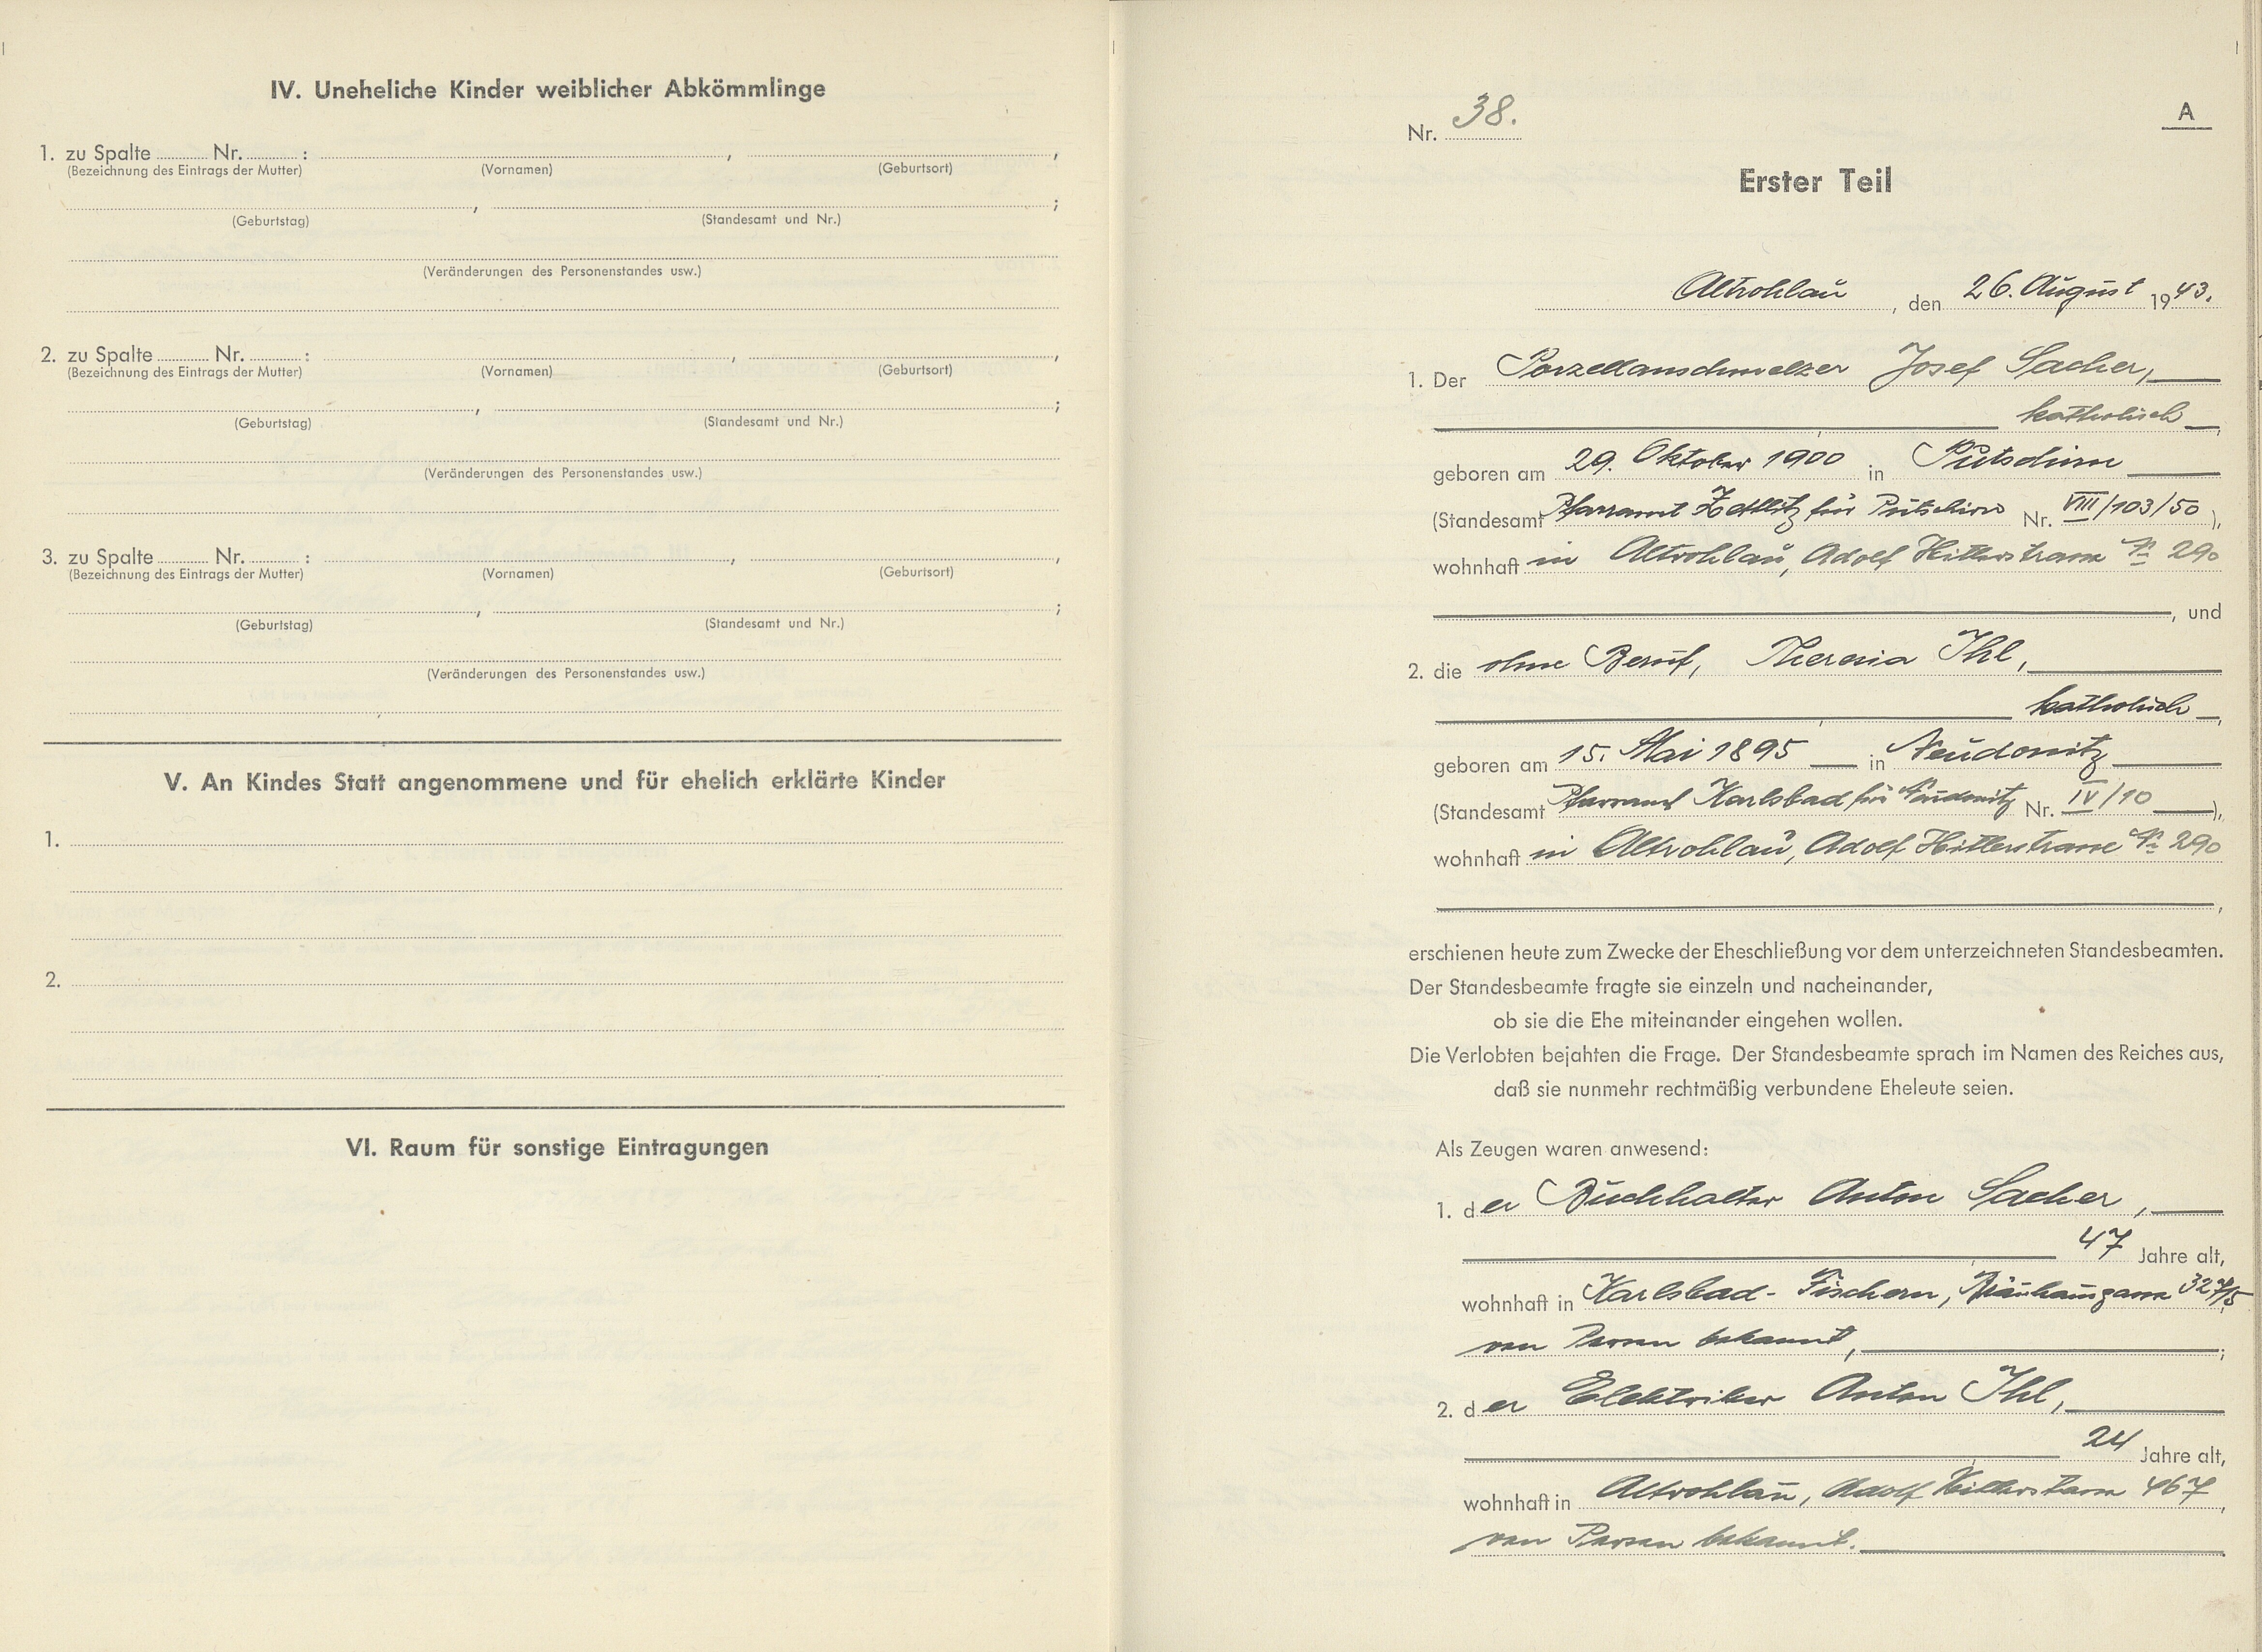 IV. Uneheliche Kinder weiblicher Abkömmlinge
1. zu Spalte ........ Nr. ........ : ........ , ........ ,
(Bezeichnung des Eintrags der Mutter) (Vornamen) (Geburtsort)
........ , ........ ;
(Geburtstag) (Standesamt und Nr.)
(Veränderungen des Personenstandes usw.)
2. zu Spalte ........ Nr. ........ : ........ , ........ ,
(Bezeichnung des Eintrags der Mutter) (Vornamen) (Geburtsort)
........ , ........ ;
(Geburtstag) (Standesamt und Nr.)
(Veränderungen des Personenstandes usw.)
3. zu Spalte ........ Nr. ........ : ........ , ........ ,
(Bezeichnung des Eintrags der Mutter) (Vornamen) (Geburtsort)
........ , ........ ;
(Geburtstag) (Standesamt und Nr.)
(Veränderungen des Personenstandes usw.)
V. An Kindes Statt angenommene und für ehelich erklärte Kinder
1.
2.
VI. Raum für sonstige Eintragungen
A
Nr. 38.
Erster Teil
Altrohlau, den 26. August 1943.
1. Der Porzellanschmelzer Josef Sacher,
katholisch,
geboren am 29. Oktober 1900 in Putschirn
(Standesamt Pfarramt Zettlitz für Putschirn Nr. VIII/103/50),
wohnhaft in Altrohlau, Adolf Hitlerstrasse № 290
, und
2. die ohne Beruf, Theresia Ihl,
katholisch,
geboren am 15. Mai 1895 in Neudonitz
(Standesamt Pfarramt Karlsbad für Neudonitz Nr. IV/10),
wohnhaft in Altrohlau, Adolf Hitlerstrasse № 290
,
erschienen heute zum Zwecke der Eheschließung vor dem unterzeichneten Standesbeamten.
Der Standesbeamte fragte sie einzeln und nacheinander,
ob sie die Ehe miteinander eingehen wollen.
Die Verlobten bejahten die Frage. Der Standesbeamte sprach im Namen des Reiches aus,
daß sie nunmehr rechtmäßig verbundene Eheleute seien.
Als Zeugen waren anwesend:
1. der Buchhalter Anton Sacher,
47 Jahre alt,
wohnhaft in Karlsbad-Fischern, Bräuhausgasse
von Person bekannt, ;
2. der Elektriker Anton Ihl,
24 Jahre alt,
wohnhaft in Altrohlau, Adolf Hitlerstrasse 467,
von Person bekannt.